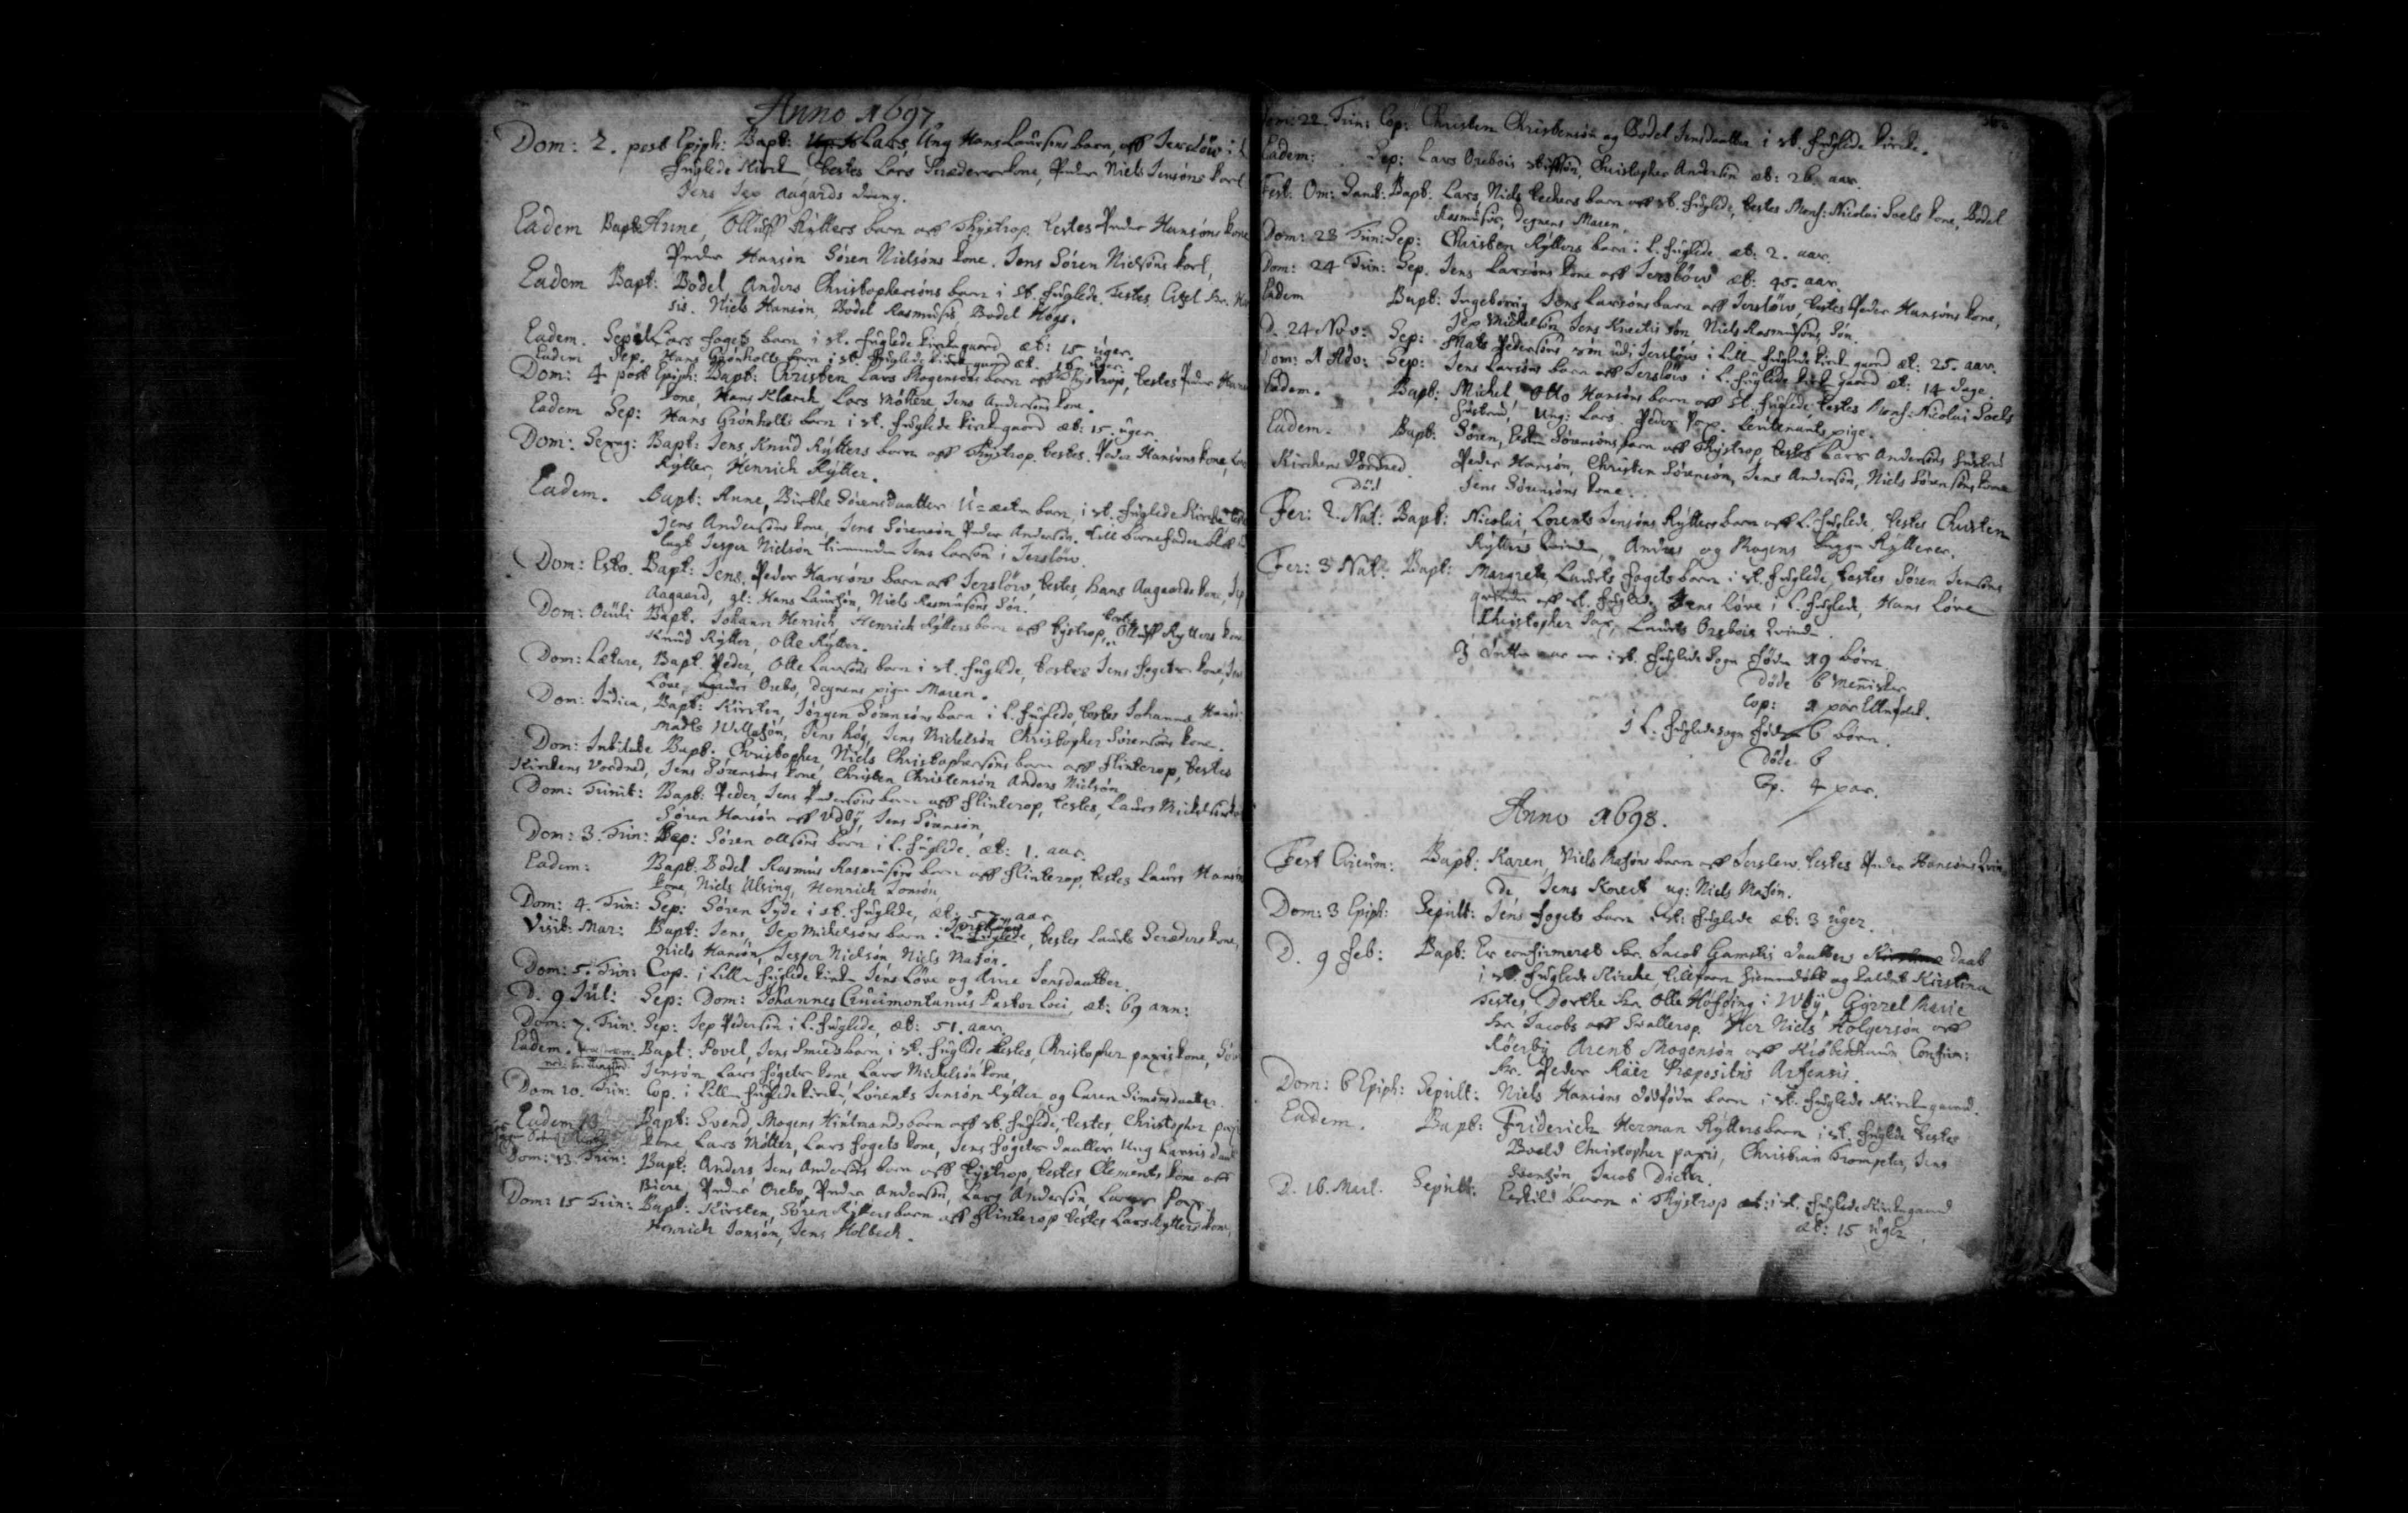 Anno 1697
Dom: 2. post Epiph: Bapt: Lars, Ung Hans Laursøns barn, aff Jerslöw i L
fuglede Kirck testes Lars Skræders kone, Peder Niels Jensøns karl
Jens Jep Aagards dreng.
Eadem Bapt: Anne, Olluff Rÿtters barn aff Thÿstrop. testes Peder Hansøns kone
Peder Hansøn Sören Nielsöns kone. Jens Sören Nielsöns karl,
Eadem Bapt: Bodel Anders Christophersöns barn i St. fuglede. Testes
Niels Hansön, Bodel Rasmusis Bodel Høgs.
Eadem. Sepult Lars fogets barn i st. fuglede kirckegaard æt: 15 uger.
Eadem Sep. Hans Grönholts barn i st. fuglede kirckegaard æt. 15 uger.
Dom: 4 post Epiph: Bapt: Christen Lars Mogensöns barn aff Thÿstrop, testes Peder Hans
kone, Hans Klarch Lars Möllere Jens Andersöns kone.
Eadem Sep: Hans Grönholts barn i st. fuglede kirckegaard æt: 15. uger.
Dom: Sexag: Bapt: Jens, Knud Rÿtters barn aff Thÿstrop. testes. Peder Hansøns kone,
Rÿtter, Henrich Rÿtter.
Eadem. Bapt: Anne, Birthe Sörensdaatter U-ægte barn, i st. fuglede Kircke
Jens Andersöns kone, Jens Sörensön Peder Andersön. till barnefader bleff
lagt Jesper Nielsön tienendes Jens Larsön i Jerslöw.
Dom: Esto. Bapt: Jens, Peder Hansöns barn aff Jerslöw, testes, Hans Aagaards kone, Jep
Aagaard, gl: Hans Laursön, Niels Rasmusöns Sön.
Dom: Oculi Bapt. Johann Henrich, Henrich Rÿtters barn aff tÿstrop, testes Olluff Rÿtters kone
Knud Rÿtter, Olle Rÿtter.
Dom: Lætare, Bapt. Peder, Olle Larsöns barn i st. fuglede, testes Jens fogets kone, Jens
Löve, Laurs Orebo, degnens pige Maren.
Dom: Judica, Bapt: Kirsten, Jörgen Sörensöns barn i L. fuglede, testes Johannes Hansis
Madts Willasön, Jens Høg, Jens Mickelsön Christopher Sörensöns kone.
Dom: Jubilate Bapt. Christopher, Niels Christophersöns barn aff flinterop, testes
Kirckens Vordned, Jens Sörensöns kone, Christen Christensön Anders Nielsön.
Dom: Trinit: Bapt: Peder, Jens Pedersöns barn aff flinterop, testes, Laurs Mickelsøns
Sören Hansön aff Udbÿ, Jens Sörensön,
Dom: 3. Trin: Sep: Sören Ollsöns barn i L. fuglede. æt: 1. aar.
Eadem: Bapt: Bodel Rasmus Rasmusöns barn aff flinterop, testes Laurs Hansöns
kone, Niels Ulsing, Henrich Jonsön
Dom: 4. Trin: Sep: Sören Tÿde i st. fuglede, æt: 57 aar
Visit: Mar: Bapt: Jens, Jep Mickelsöns barn i Jerslöw, testes Laurs Skræders kone,
Niels Hansön, Jesper Nielsön, Niels Matsön.
Dom: 5. Trin: Cop. i Lille fuglede kircke Jens Löve og Anne Jensdaatter.
D. 9 Jul: Sep: Dom: Johannes Crucimontanus Pastor Loci, æt: 69 ann:
Dom: 7. Trin: Sep: Jep Pedersön i L. fuglede, æt: 51. aar.
Eadem. Bapt: Povel, Jens Smeds barn, i st. fuglede testes, Christopher paxis kone,
Jensön, Lars fogets kone Lars Mickelsön kone,
Dom 10. Trin: Cop. i Lille fuglede kircke, Lorents Jensön Rÿtter og Caren Simonsdaatter.
Eadem Bapt: Svend, Mogens Hiulmands barn aff st. fuglede, testes, Christopher paxis
kone Lars Møller, Lars fogets kone, Jens fogets daatter Ung Larsis
Dom: 13. Trin: Bapt: Anders Jens Andersöns barn aff tÿstrop, testes Clements kone aff
Biere, Peder Orebo, Peder Andersön, Lars Andersön, Laurs
Dom: 15 Trin: Bapt: Kirsten, Sören Rÿtters barn aff flinterop testes Lars Rÿtters kone,
Henrich Jonsön, Jens Holbech.
Dom: 22. Trin: Cop: Christen Christensön og Bodel Jensdaatter i st. fuglede kircke.
Eadem: Sep: Lars Orebois stifsön, Christopher Andersön æt: 26 aar.
Fest. Om: Sanct: Bapt. Lars, Niels teckers barn aff st. fuglede, testes Mons: Nicolai Soels kone, Bodel
Rasmusis, degnens Maren.
Dom: 23 Trin: Sep: Christen Rÿtters barn i L. fuglede æt: 2. aar.
Dom: 24 Trin: Sep. Jens Larsöns kone aff Jerslöw æt: 45. aar.
Eadem Bapt: Ingeborrig Jens Larsöns barn aff Jerslöw, testes Peder Hansöns kone,
Jep Mickelsön, Jens Knectis sön, Niels Rasmusöns Sön.
D. 24 Nov: Sep: Mats Pedersöns sön udi Jerslöw i Lille fuglede kirckegaard æt: 25. aar.
Dom: 1 Adv: Sep: Jens Larsöns barn aff Jerslöw i L. fuglede kirckegaard æt: 14 dage.
Eadem. Bapt: Mickel Otto Hansöns barn aff St. fuglede, testes Mons: Nicolai Soels
hustrue, Ung: Lars. Peder Jep. Leutenants pige.
Eadem. Bapt. Sören, Sörensöns barn aff Thÿstrop, testes Lars Andersöns hustrue
Kirckens Vordned Peder Hansön, Christen Sörensön, Jens Andersön, Niels Sörensöns kone
Jens Sörensöns kone.
Fer: 2. Nat: Bapt: Nicolai, Lorents Jensöns Rÿtters barn aff L. fuglede, testes Christen
Rÿtters kvinde, Anders og Mogens begge Rÿttere.
Fer: 3 Nat: Bapt: Margrete, Laurts fogets barn i st. fuglede, testes Sören Jensöns
qvinde aff st. fuglede, Jens Löve i L. fuglede, Hans Löve
Christopher Pax, Laurts Orebois kvinde.
I dette aar er i st. fuglede Sogn fødde 19 börn.
Døde 6 Menisker
Cop: 1 par
I L. fuglede sogn fødde 6 börn.
Døde 6
Cop. 4 par.
Anno 1698.
Fest Circum: Bapt: Karen, Niels Matsöns barn aff Jerslew. testes Peder Hansöns kvin
de, Jens Knect ug: Niels Matsön.
Dom: 3 Epiph: Sepult: Jens fogets barn i st: fuglede æt: 3 uger.
D. 9 feb: Bapt: Er confirmeret Hr. Jacob Gamstis daatters daab
i st. fuglede Kircke, tilforn hiemmedöbt og kaldet Kirstina
Testes, Dorthe Hr. Olle Höfding i Udbÿ, Gÿrrel Marie
Hr. Jacobs aff Svallerop. Her Niels Holgersön aff
Röerbÿ Arent Mogensön aff Kiöbenhaun Confirm:
Hr. Peder Præpositus Arsensis.
Dom: 6 Epiph: Sepult: Niels Hansöns dödfödde barn i st. fuglede Kirckegaard.
Eadem. Bapt: Friderich Herman Rÿtters barn i st. fuglede testes
Boeld Christopher paxis, Christian Trompeter, Jens
Svensön, Jacob Dicter.
D. 16. Mart. Sepult: Eschild barn i Thÿstrop i st. fuglede Kirckegaard
æt: 15 uger.